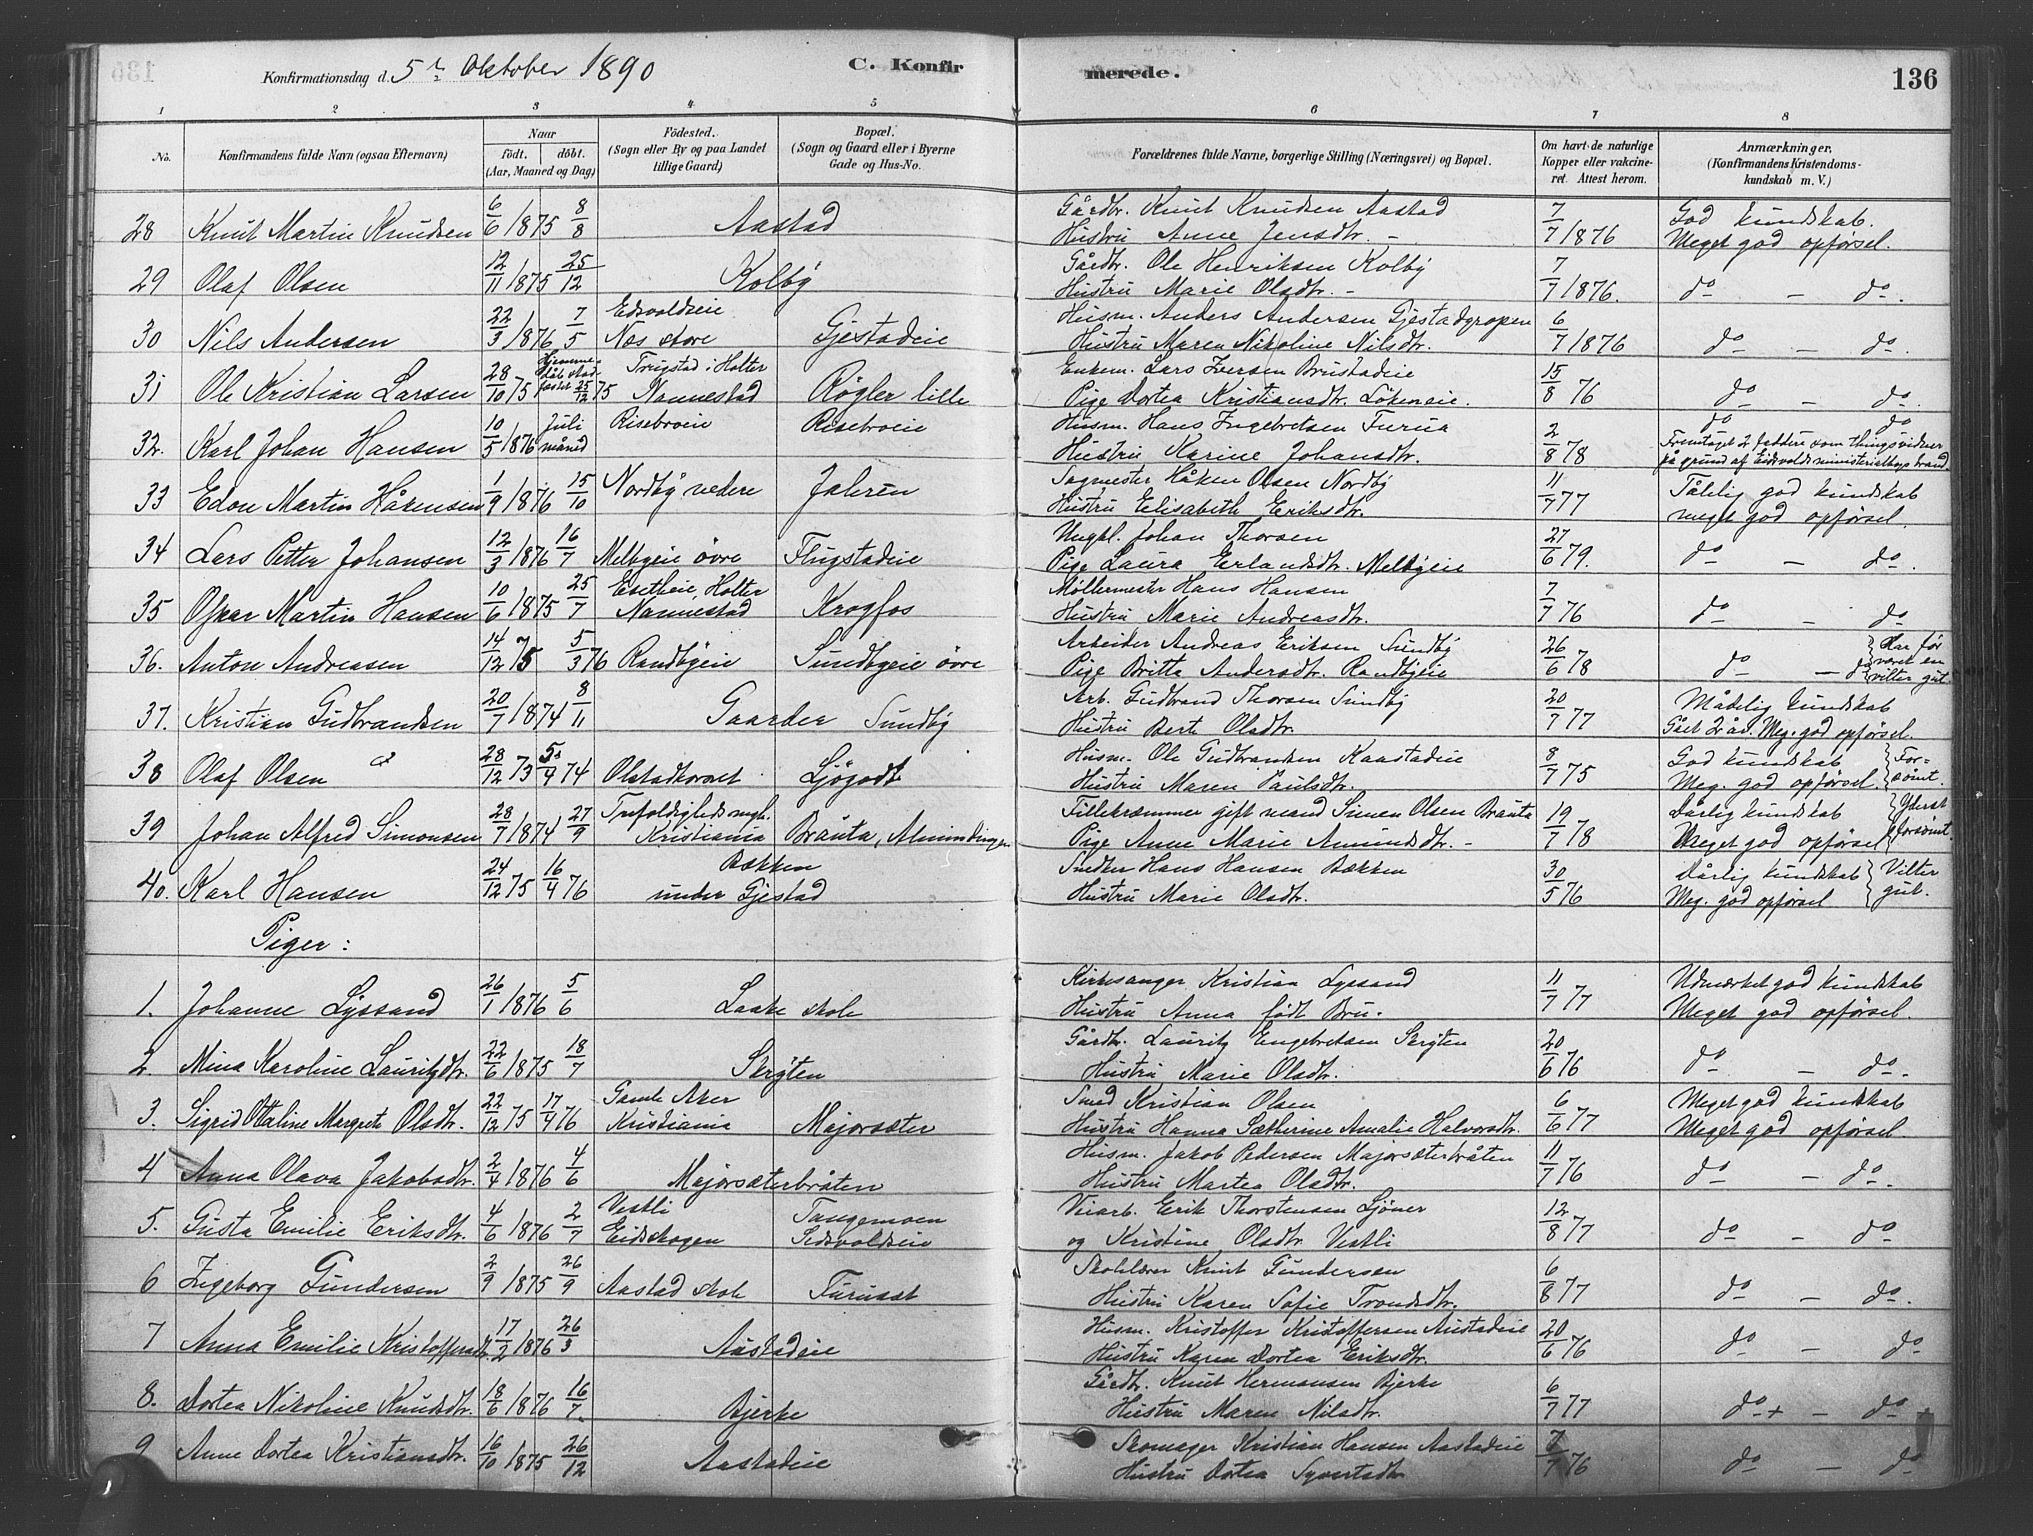 Konfirmationsdag d. 5te Oktober 1890 C. Konfirmerede. 136
1 2 3 4 5 6 7 8
No. Konfirmandens fulde Navn (ogsaa Efternavn) Naar født. døbt. (Aar, Maaned og Dag) Fødested. (Sogn eller By og paa Landet tillige Gaard) Bopæl. (Sogn og Gaard eller i Byerne Gade og Hus-No. Forældrenes fulde Navne, borgerlige Stilling (Næringsvei) og Bopæl. Om havt de naturlige Kopper eller vakcineret. Attest herom. Anmærkninger, (Konfirmandens Kristendomskundskab m. V.)
28 Knut Martin Knudsen 6/6 1875 8/8 Aastad Gårdbr. Knut Knudsen Aastad 7/7 1876 God kundskab.
Hustru Anne Jensdtr. - Meget god opførsel.
29 Olaf Olsen 12/11 1875 25/12 Kolby Gårdbr. Ole Henriksen Kolby 7/7 1876. do - do.
Hustru Marie Olsdtr. -
30 Nils Andersen 22/3 1876 7/5 Edsvoldseie Næs store Gjestadeie Husm. Anders Andersen Gjestadgropen 6/7 1876 do - do.
Hustru Maren Nikoline Nilsdtr.
31 Ole Kristian Larsen 28/10 75 Hjemmedåb stadfæstet 25/12 75 Trugstad i Holter Nannestad Røgler lille Enkem. Lars Iversen Brustadeie 15/8 76 do - do.
Pige Dortea Kristiansdtr. Løkeneie.
32. Karl Johan Hansen 10/5 1876 Juli måned Risebroeie Risebroeie Husm. Hans Ingebretsen Furua 2/8 78 do do
Hustru Karine Johansdtr. Fremtaget 2 faddere som thingsvidner på grund af Eidsvolds ministerialbogs brand
33 Edon Martin Håkensen 1/9 1876 15/10 Nordby nedre Jaleren Sagmester Håken Olsen Nordby 11/7 77 Tålelig god kundskab
Hustru Elisabeth Eriksdtr. meget god opførsel.
34 Lars Petter Johansen 12/3 1876 16/7 Melbyeie øvre Flugstadeie Ungkl. Johan Thorsen 27/6 79. do - do.
Pige Laura Erlandsdtr. Melbyeie
35 Oskar Martin Hansen 10/6 1875 25/7 Holter Nannestad Krogfos Møllermester Hans Hansen 7/7 76 do - do
Hustru Marie Andreasdtr.
36. Anton Andreasen 14/12 75 5/3 76 Randbyeie Sundbyeie øvre Arbeider Andreas Eriksen Sundby 26/6 78 do - do Har før været en vilter gut.
Pige Britta Andersdtr. Randbyeie
37. Kristian Gudbrandsen 20/7 1874 8/11 Gaarder Sundby Arb. Gudbrand Thorsen Sundby 20/7 77 Mådelig kundskab
Hustru Berte Olsdtr. Gået 2 år. Meg. god opførsel.
38 Olaf Olsen 28/12 73 5/4 74 Olstadkornet Sjøgodt Husm. Ole Gudbrandsen Kaastadeie 8/7 75 God kundskab Forsømt.
Hustru Maren Paulsdtr. Meg. god opførsel.
39 Johan Alfred Simonsen 28/7 1874 27/9 Trefoldigheds mgh. Kristiania Bråuta, Almindingen Fillekræmmer gift mand Simen Olsen Bråuta 19/7 78 Dårlig kundskab Yderst forsømt.
Pige Anne Marie Amundsdtr. - Meget god opførsel
40. Karl Hansen 24/12 75 16/4 76 Bækken under Gjestad Snedker Hans Hansen Bækken 30/5 76 Dårlig kundskab Vilter gut.
Hustru Marie Olsdtr. Meg. god opførsel
Piger:
1. Johanne Lyssand 26/1 1876 5/6 Laake skole Kirkesanger Kristian Lyssand 11/7 77 Udmærket god kundskab
Hustru Anna født Bru. Meget god opførsel.
2. Mina Karoline Lauritzdtr. 22/6 1875 18/7 Skryten Gårdbr. Lauritz Engebretsen Skryten 20/6 76 do - do.
Hustru Marie Olsdtr.
3. Sigrid Otaline Margrete Olsdtr. 22/12 75 17/4 76 Gamle Aker Kristiania Majorsæter Smed Kristian Olsen 6/6 77 Meget god kundskab
Hustru Hanna Kathrine Amalie Halvorsdtr. Meget god opførsel.
4 Anna Olava Jakobsdtr. 2/4 1876 4/6 Majorsæterbråten Husm. Jakob Pedersen Majorsæterbråten 11/7 76 do - do.
Hustru Martea Olsdtr.
5. Gusta Emilie Eriksdtr. 4/6 1876 2/7 Vestli Eidskogen Tangemoen Eidsvoldseie Veiarb. Erik Thorstensen Sjøner 12/8 77 do - do
og Kristine Olsdtr Vestli
6 Ingeborg Gundersen 2/9 1875 26/9 Aastad skole Furuset Skolelærer Knut Gundersen 6/8 77 do - do.
Hustru Karen Sofie Trondsdtr.
7 Anna Emilie Kristoffersdtr. 17/2 1876 26/3 Aastadeie Husm. Kristoffer Kristoffersen Aastadeie 20/6 76 do - do
Hustru Karen Dortea Eriksdtr.
8. Dortea Nikoline Knudsdtr. 18/6 1876 16/7. Bjerke Gårdbr. Knut Hermansen Bjerke 6/7 77 do + - do
Hustru Maren Nilsdtr.
9 Anne Dortea Kristiansdtr. 16/10 1875 26/12 Aastadeie Skomager Kristian Hansen Aastadeie 7/7 76 do - do
Hustru Dortea Syverstdtr